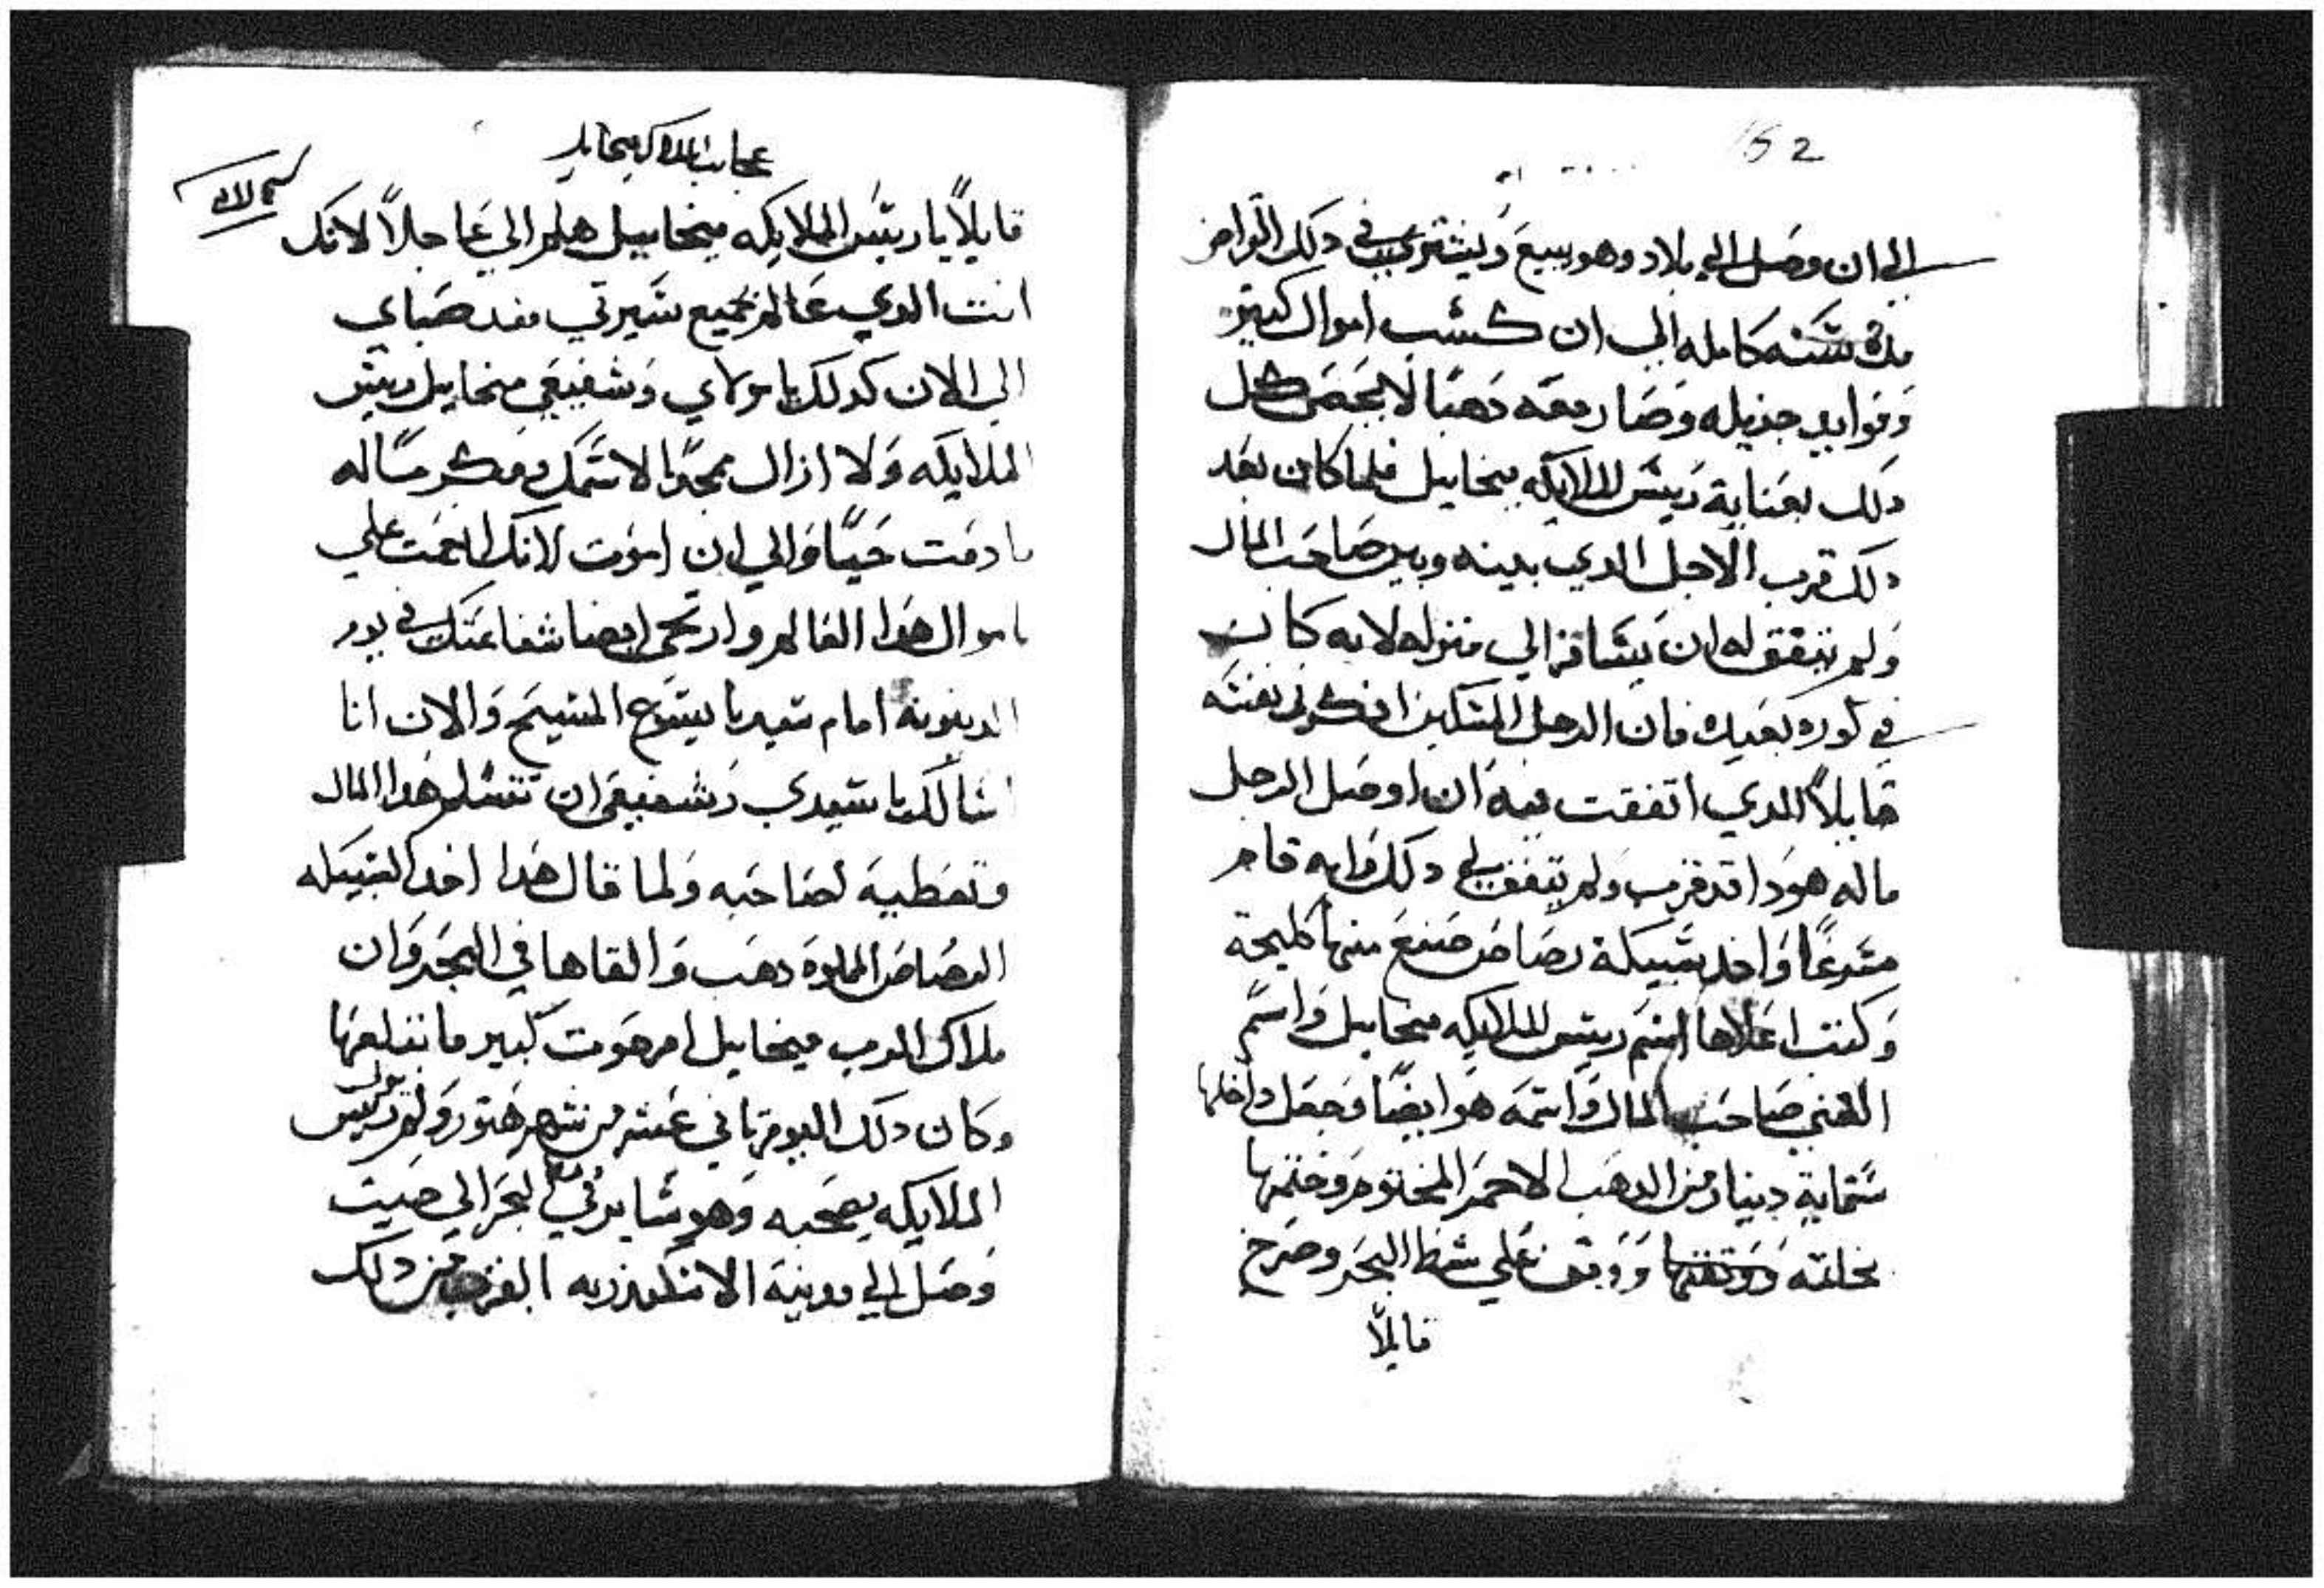 152
الي ان وصل الي بلاد وهو يبيع ويشتري في دلك النواحي
مدة سنه كامله الي ان كسب اموال كتيره
وفوايد جزيله وصار معه دهبًا لا يحصي كل
دلك بعناية رييس الملايكه ميخاييل فلما كان بعد
دلك قرب الاجل الدي بينه وبين صاحب المال
ولم يتفق له ان يسافر الي منزله لانه كان
في كوره بعيده فان الرجل المسكين افكر في نفسه
قايلاً الدي اتفقت فيه ان اوصل الرجل
ماله هودا قد قرب ولم يتفق لي دلك وانه قام
مسرعًا واخد سبيكة رصاص صنع منها كليحة
وكتب اعلاها اسم رييس الملايكه ميخاييل واسم
الغني صاحب المال واسمه هو ايضًا وجعل داخلها
ستماية دينار من الدهب الاحمر المختوم وختمها
بخاتمه ووقف علي شط البحر وصرخ
قايلاً
عجايب الملاك ميخاييل
قايلاً يا رييس الملايكه ميخاييل هلم الي عاجلاً لانك
انت الدي عالم بجميع سيرتي مند صباي
الي الان كدلك يا مولاي وشفيعي ميخاييل رييس
الملايكه ولا ازال ممجدًا لاسمك ومكرمًا له
ما دمت حيًا والي ان اموت لانك انعمت علي
باموال هدا العالم وارتجي ايضا شفاعتك في يوم
الدينونه امام سيدنا يسوع المسيح والان انا
اسالك يا سيدي وشفيعي ان تتسلم هدا المال
وتعطيه لصاحبه ولما قال هدا اخد السبيكه
الرصاص المملوه دهب والقاها في البحر وان
ملاك الرب ميخاييل امر حوت كبير فابتلعها
وكان دلك اليوم تاني عشر من شهر هتور ولم يزل رييس
الملايكه يصحبه وهو ساير في البحر الي حيت
وصل الي مدينة الاسكندريه بالقرب من دلك